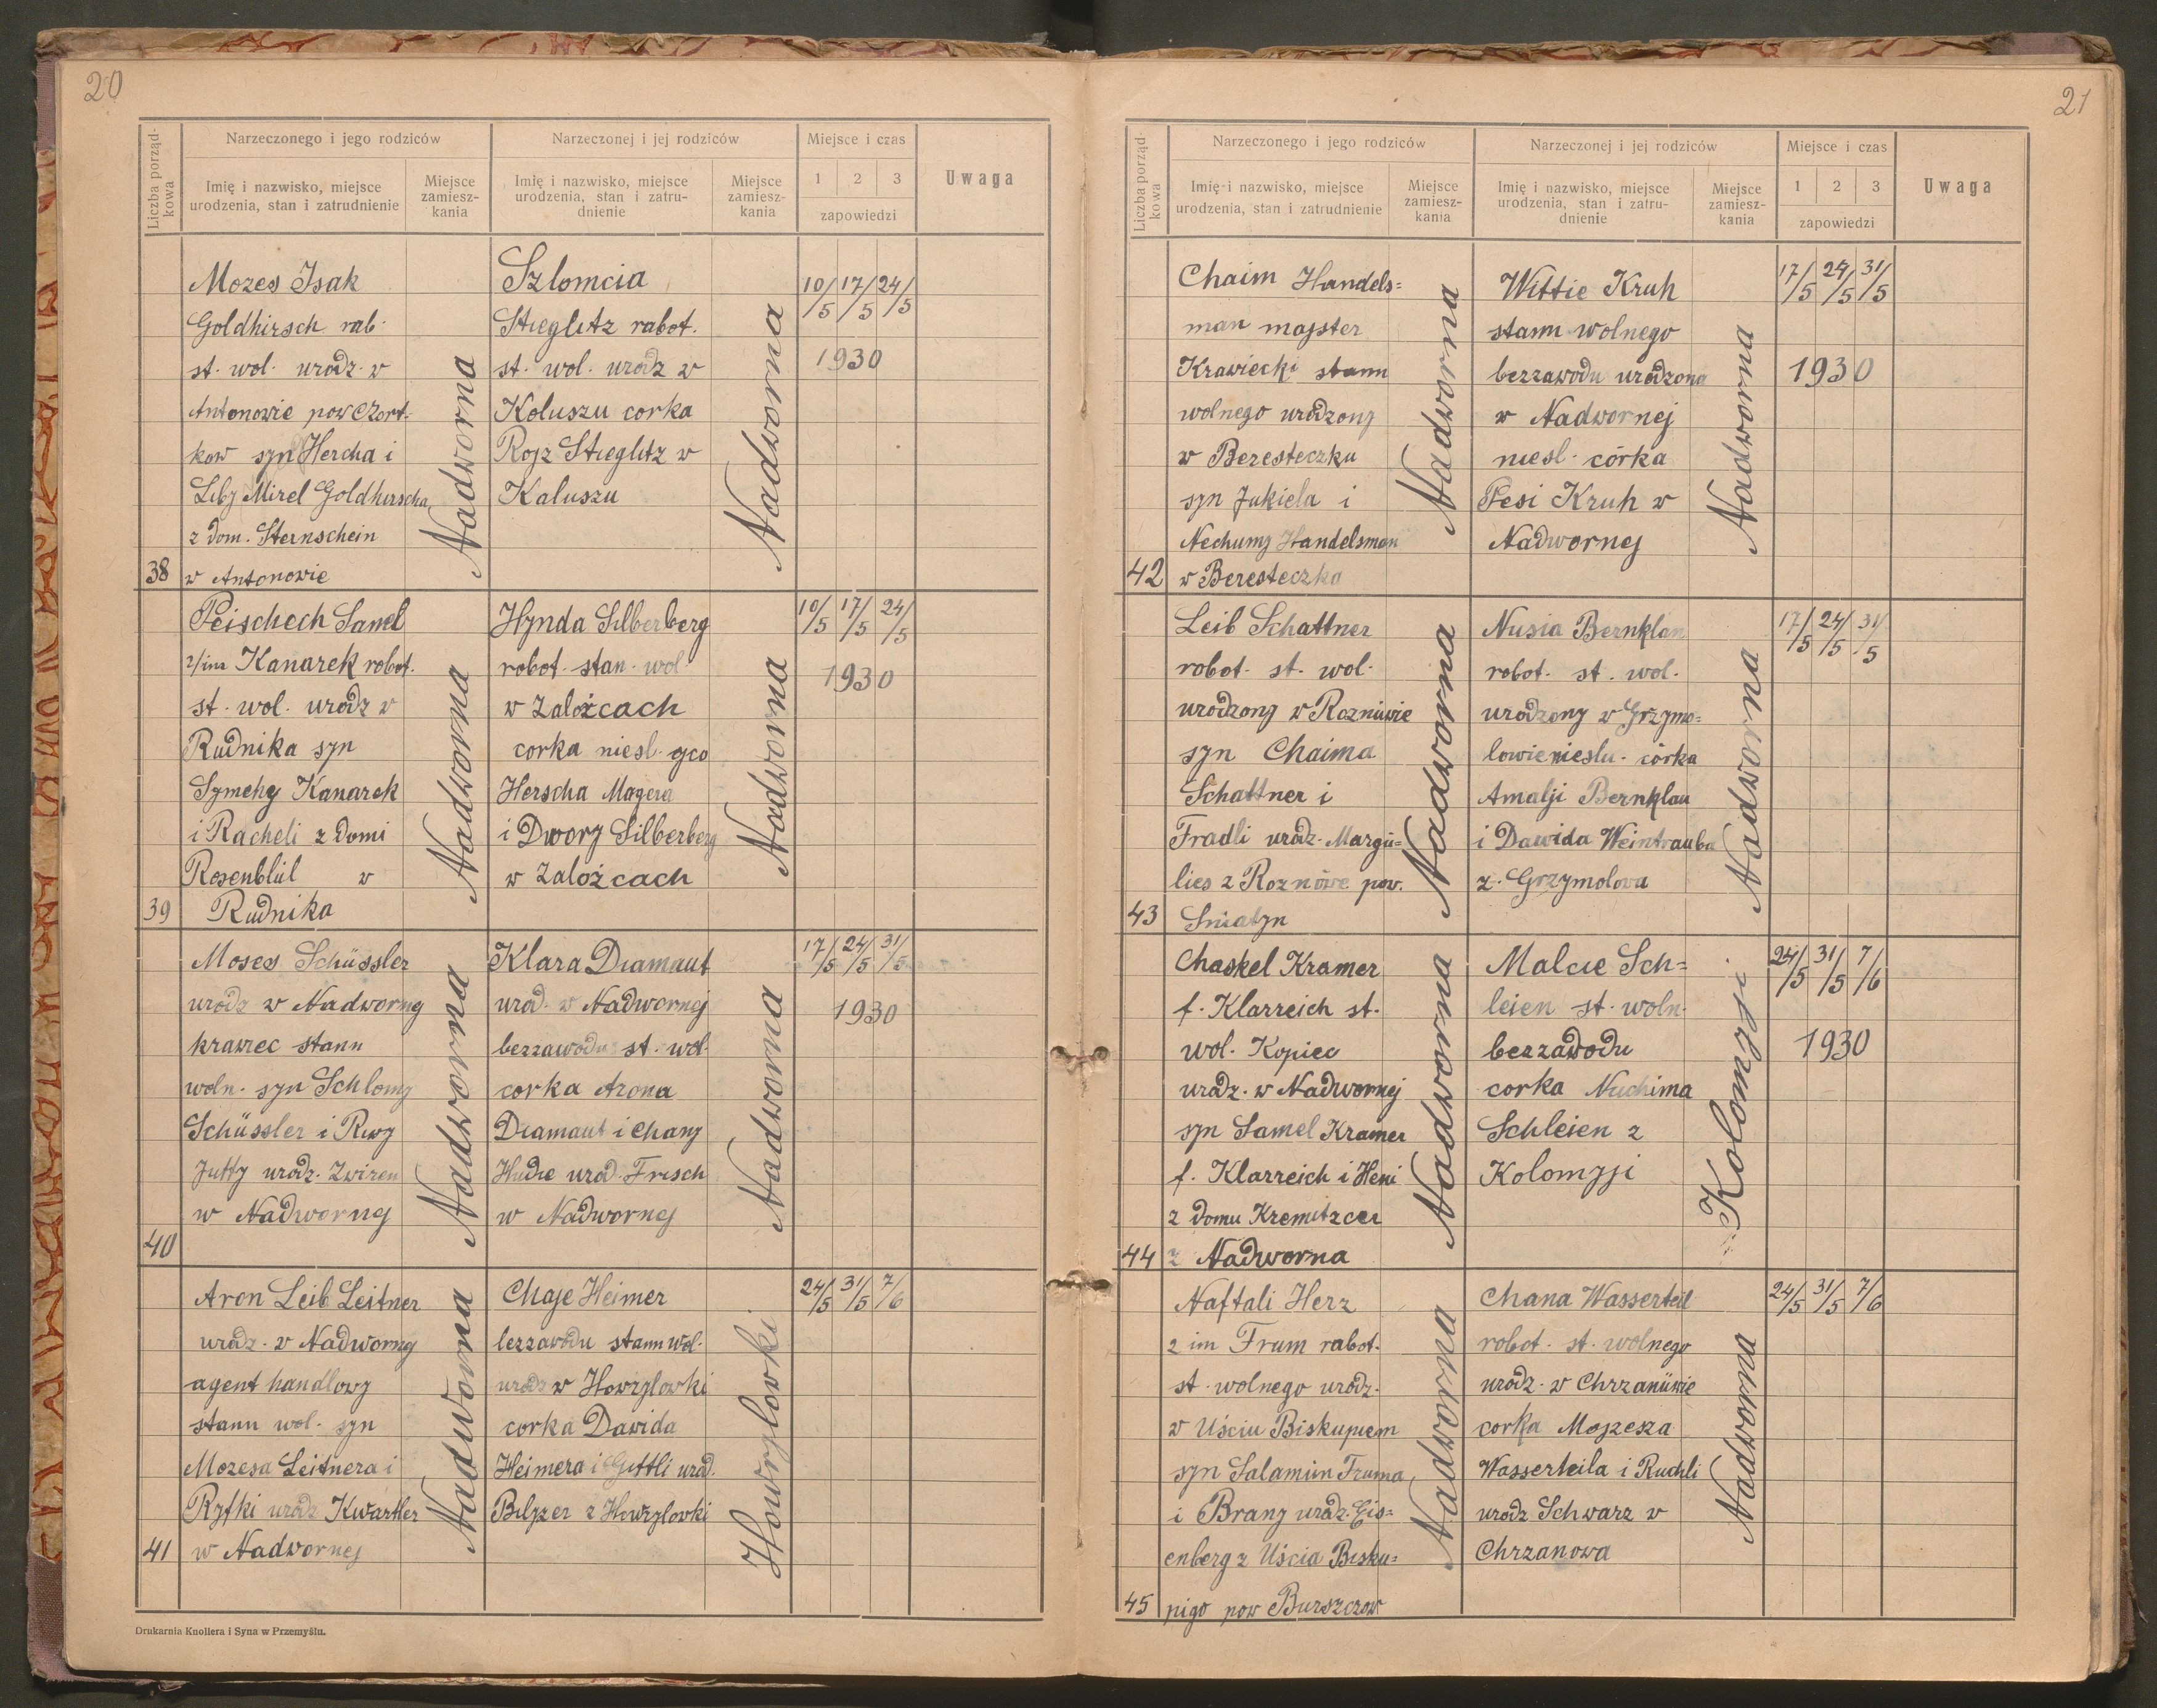 20
Liczba porząd-
kowa
Narzeczonego i jego rodziców
Narzeczonej i jej rodziców
Miejsce i czas
Uwaga
Imię i nazwisko, miejsce
urodzenia, stan i zatrudnienie
Miejsce
zamiesz-
kania
Imię i nazwisko, miejsce
urodzenia, stan i zatru-
dnienie
Miejsce
zamiesz-
kania
1 2 3
zapowiedzi
Mozes Isak
Goldhirsch rab.
st. wol. urodz. w
Antonowie pow Czort-
kow syn Hercha i
Liby Mirel Goldhirscha
z dom. Sternschein
38 w Antonowie
Nadworna
Szlomcia
Stieglitz rabot.
st. wol. urodz w
Koluszu corka
Rojz Stieglitz w
Kaluszu
Nadworna
10/5 17/5 24/5
1930
Peischech Samel
2/im Kanarek robot.
st. wol. urodz w
Rudnika syn
Symchy Kanarek
i Racheli z domi
Rosenblüt w
39 Rudnika
Nadworna
Hynda Silberberg
robot. stan. wol
w Zalożcach
corka niesl. gco
Herscha Magera
i Dwory Silberberg
w Zalożcach
Nadworna
10/5 17/5 24/5
1930
Moses Schüssler
urodz w Nadworny
krawiec stanu
woln. syn Schlomy
Schüssler i Rwy
Jutty urodz. Zwiren
w Nadwornej
40
Nadworna
Klara Diamaut
urod. w Nadwornej
bezzawodu st. wol.
corka Arona
Diamaut i Chany
Hudie urod. Frisch
w Nadwornej
Nadworna
17/5 24/5 31/5
1930
Aron Leib Leitner
urodz. w Nadworny
agent handlowy
stanu wol. syn
Mozesa Leitnera i
Ryfki urodz Kwartler
41 w Nadwornej
Nadworna
Chaje Heimer
bezzawodu stanu wol.
urodz w Howrylowki
corka Dawida
Heimera i Gittli urod.
Bilzer z Howrylowki
Howrylowki
24/5 31/5 7/6
Drukarnia Knollera i Syna w Przemyślu.
21
Liczba porząd-
kowa
Narzeczonego i jego rodziców
Narzeczonej i jej rodziców
Miejsce i czas
Uwaga
Imię i nazwisko, miejsce
urodzenia, stan i zatrudnienie
Miejsce
zamiesz-
kania
Imię i nazwisko, miejsce
urodzenia, stan i zatru-
dnienie
Miejsce
zamiesz-
kania
1 2 3
zapowiedzi
Chaim Handels=
man majster
Krawiecki stanu
wolnego urodzony
w Beresteczku
syn Jukiela i
Nechumy Handelsman
42 w Beresteczka
Nadworna
Wittie Kruh
stanu wolnego
bezzawodu urodzona
w Nadwornej
niesl. córka
Pesi Kruh w
Nadwornej
Nadworna
17/5 24/5 31/5
1930
Leib Schattner
robot. st. wol.
urodzony w Roznüwie
syn Chaima
Schattner i
Fradli urodz. Margu=
lies z Roznowe pow.
43 Sniatyn
Nadworna
Nusia Bernklau
robot. st. wol.
urodzony w Grzymo=
lowie nieslu. córka
Amalji Bernklau
i Dawida Weintrauba
z. Grzymolowa
Nadworna
17/5 24/5 31/5
Chaskel Kramer
f. Klarreich st.
wol. Kopiec
urodz. w Nadwornej
syn Samel Kramer
f. Klarreich i Heni
z domu Kremitzcer
44 z Nadworna
Nadworna
Malcie Sch=
leien st. woln.
bezzawodu
corka Nuchima
Schleien z
Kolomyji
Kolomyji
24/5 31/5 7/6
1930
Naftali Herz
2 im Frum rabot.
st. wolnego urodz.
w Uściu Biskupiem
syn Salamün Fruma
i Brany urodz. Eis=
enberg z Uścia Bisku=
45 pigo pow Burszczow
Nadworna
Chana Wasserteil
robot. st. wolnego
urodz. w Chrzanüwie
corka Mojzesza
Wasserteila i Ruchli
urodz Schwarz w
Chrzanowa
Nadworna
24/5 31/5 7/6